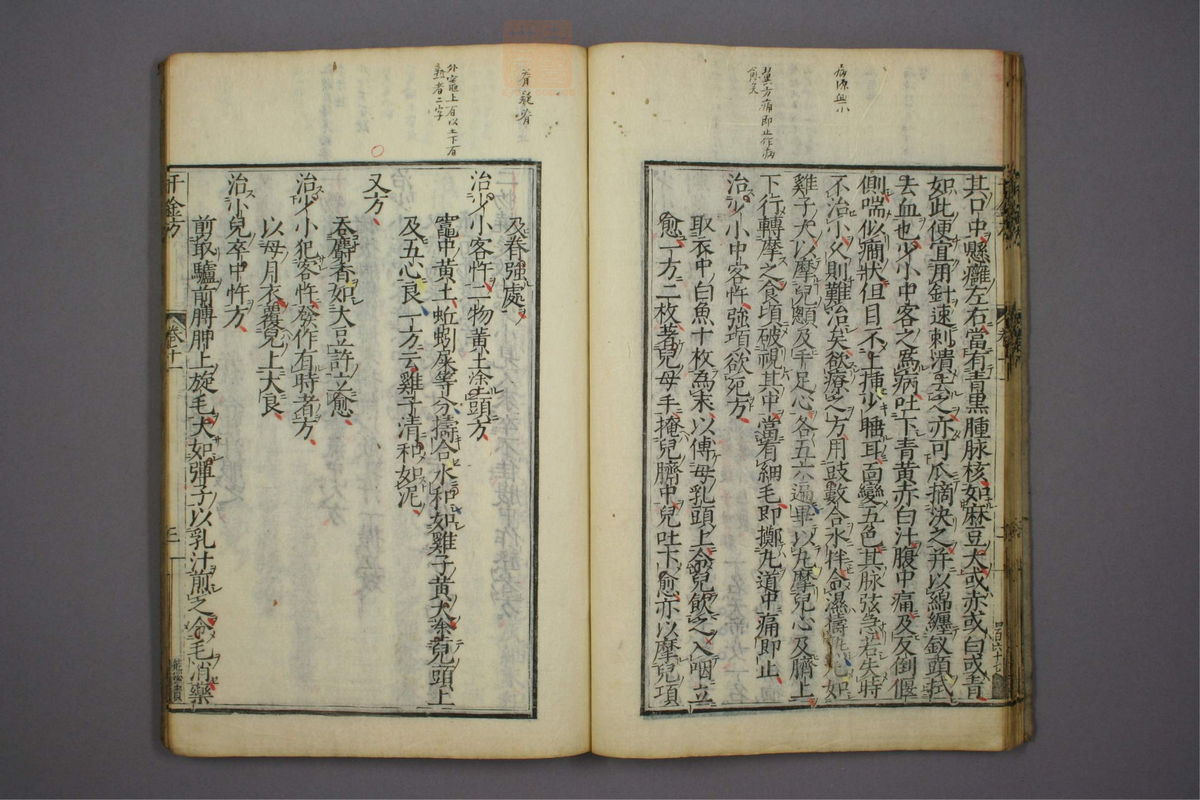 病源無小
翼方痛即止作病
愈矣
其口中懸癰左右當有青黑腫脉核如麻豆大或赤或白或青
如此便宜用針速刺潰去之亦可爪摘決之并以綿纏釵頭拭
去血也少小中客之為病吐下青黄赤白汁腹中痛及反倒偃
側喘似癇狀但目不上揷少睡耳面變五色其脉弦急若失時
不治小久則難治矣欲療之方用豉數合水拌令濕擣熟丸如
雞子大以摩兒顖及手足心各五六遍畢以丸摩兒心及臍上
下行轉摩之食頃破視其中當有細毛即擲丸道中痛即止
治少小中客忤強項欲死方
取衣中白魚十枚為末以傅母乳頭上令兒飲之入咽立
愈一方二枚著兒母手掩兒臍中兒吐下愈亦以摩兒項
脊疑脊
外臺上有以土下有
熟者二字
及脊強處
治少小客忤二物黄土塗頭方
竈中黄土蚯蚓屎等分擣合水和如雞子黄大塗兒頭上
及五心良一方云雞子清和如泥
又方
吞麝香如大豆許立愈
治少小犯客忤發作有時者方
以母月衣覆兒上大良
治小兒卒中忤方
剪取驢前膊胛上旋毛大如彈子以乳汁煎之令毛消藥
千金方
卷十一
三